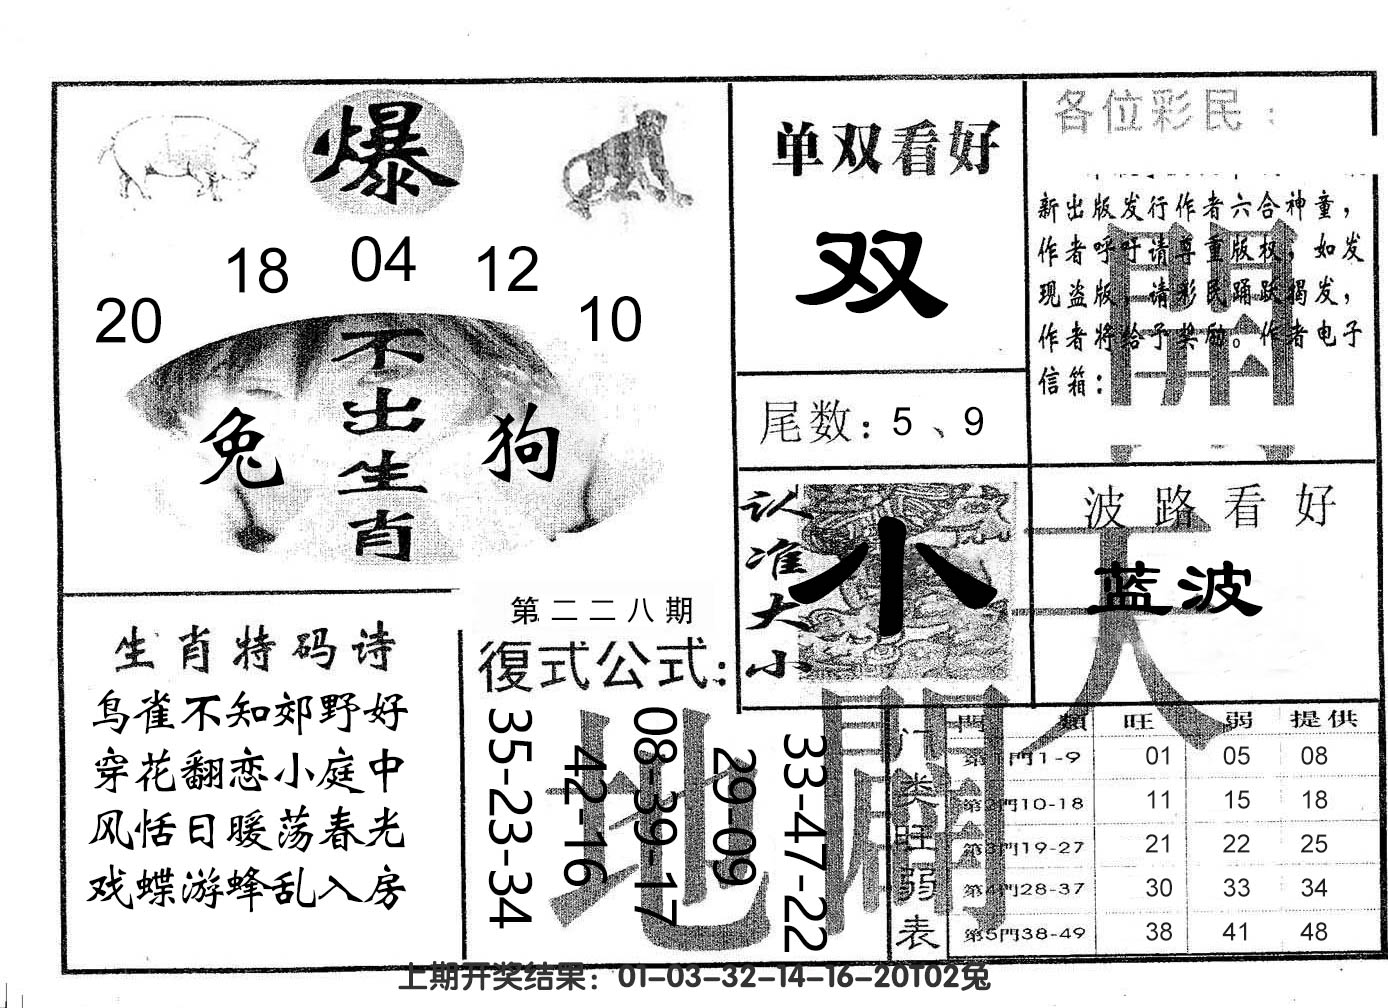 爆
20
18
04
12
10
不出生肖
兔
狗
单双看好
双
尾数：5、9
各位彩民：
新出版发行作者六合神童，
作者呼吁请尊重版权，如发
现盗版，请彩民踊跃揭发，
作者将给予奖励。作者电子
信箱：
開
认准大小
小
波路看好
蓝波
天
生肖特码诗
鸟雀不知郊野好
穿花翻恋小庭中
风恬日暖荡春光
戏蝶游蜂乱入房
第二二八期
復式公式：
35-23-34
42-16
08-39-17
29-09
33-47-22
地
门类旺弱表
門類 旺 弱 提供
第1門1-9 01 05 08
第2門10-18 11 15 18
第3門19-27 21 22 25
第4門28-37 30 33 34
第5門38-49 38 41 48
上期开奖结果：01-03-32-14-16-20T02兔